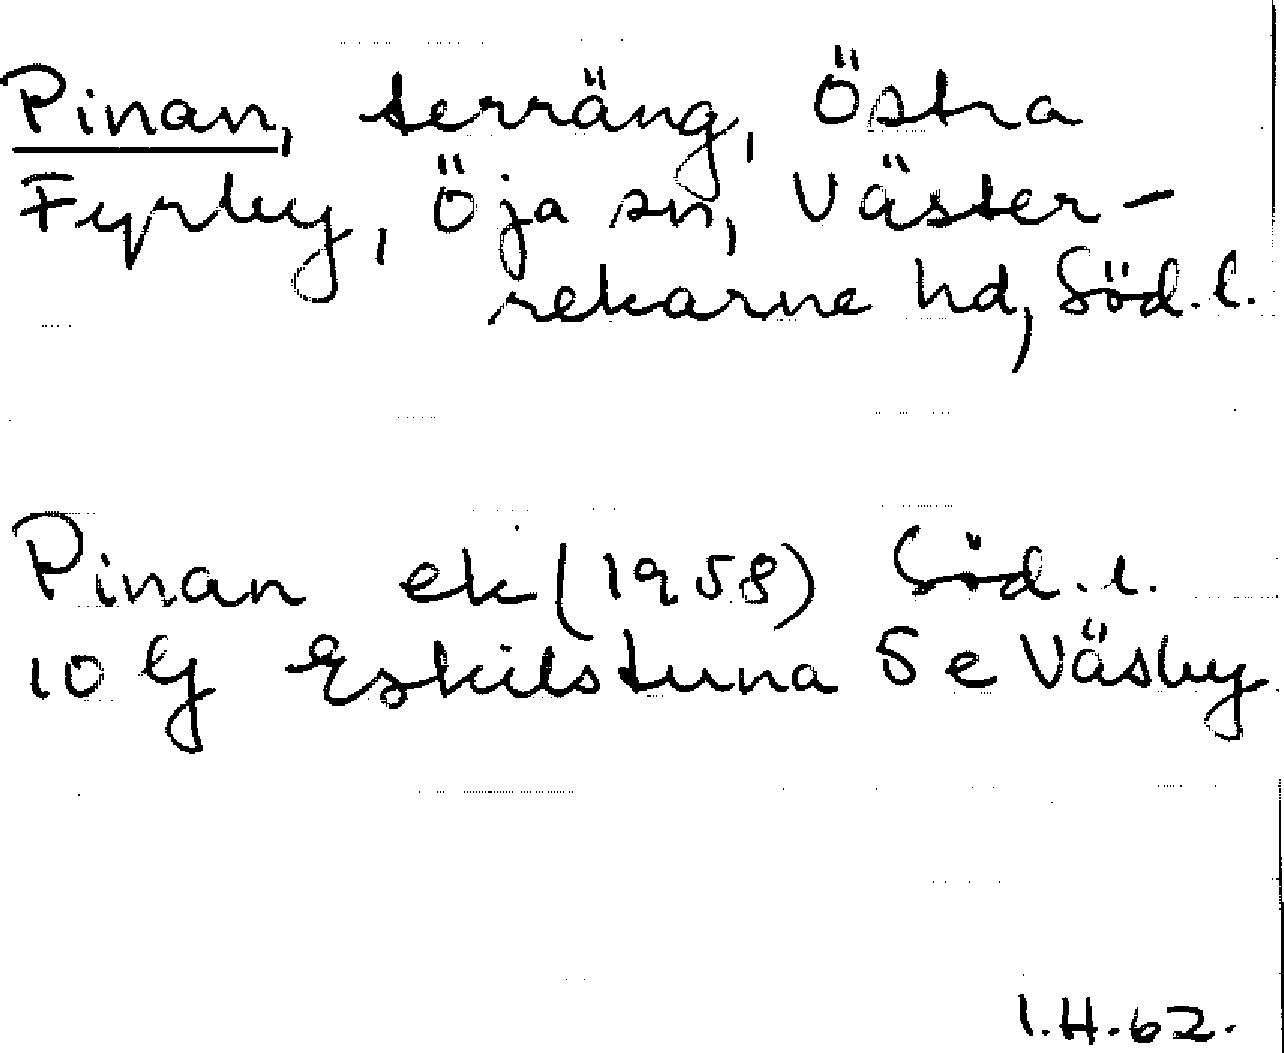 Pinan, terräng, Östra
Fyrby, Öja sn, Väster-
rekarne hd, Söd.l.
Pinan ek (1958) Söd.l.
10 G Eskilstuna 5 e Väsby
I.H.62.